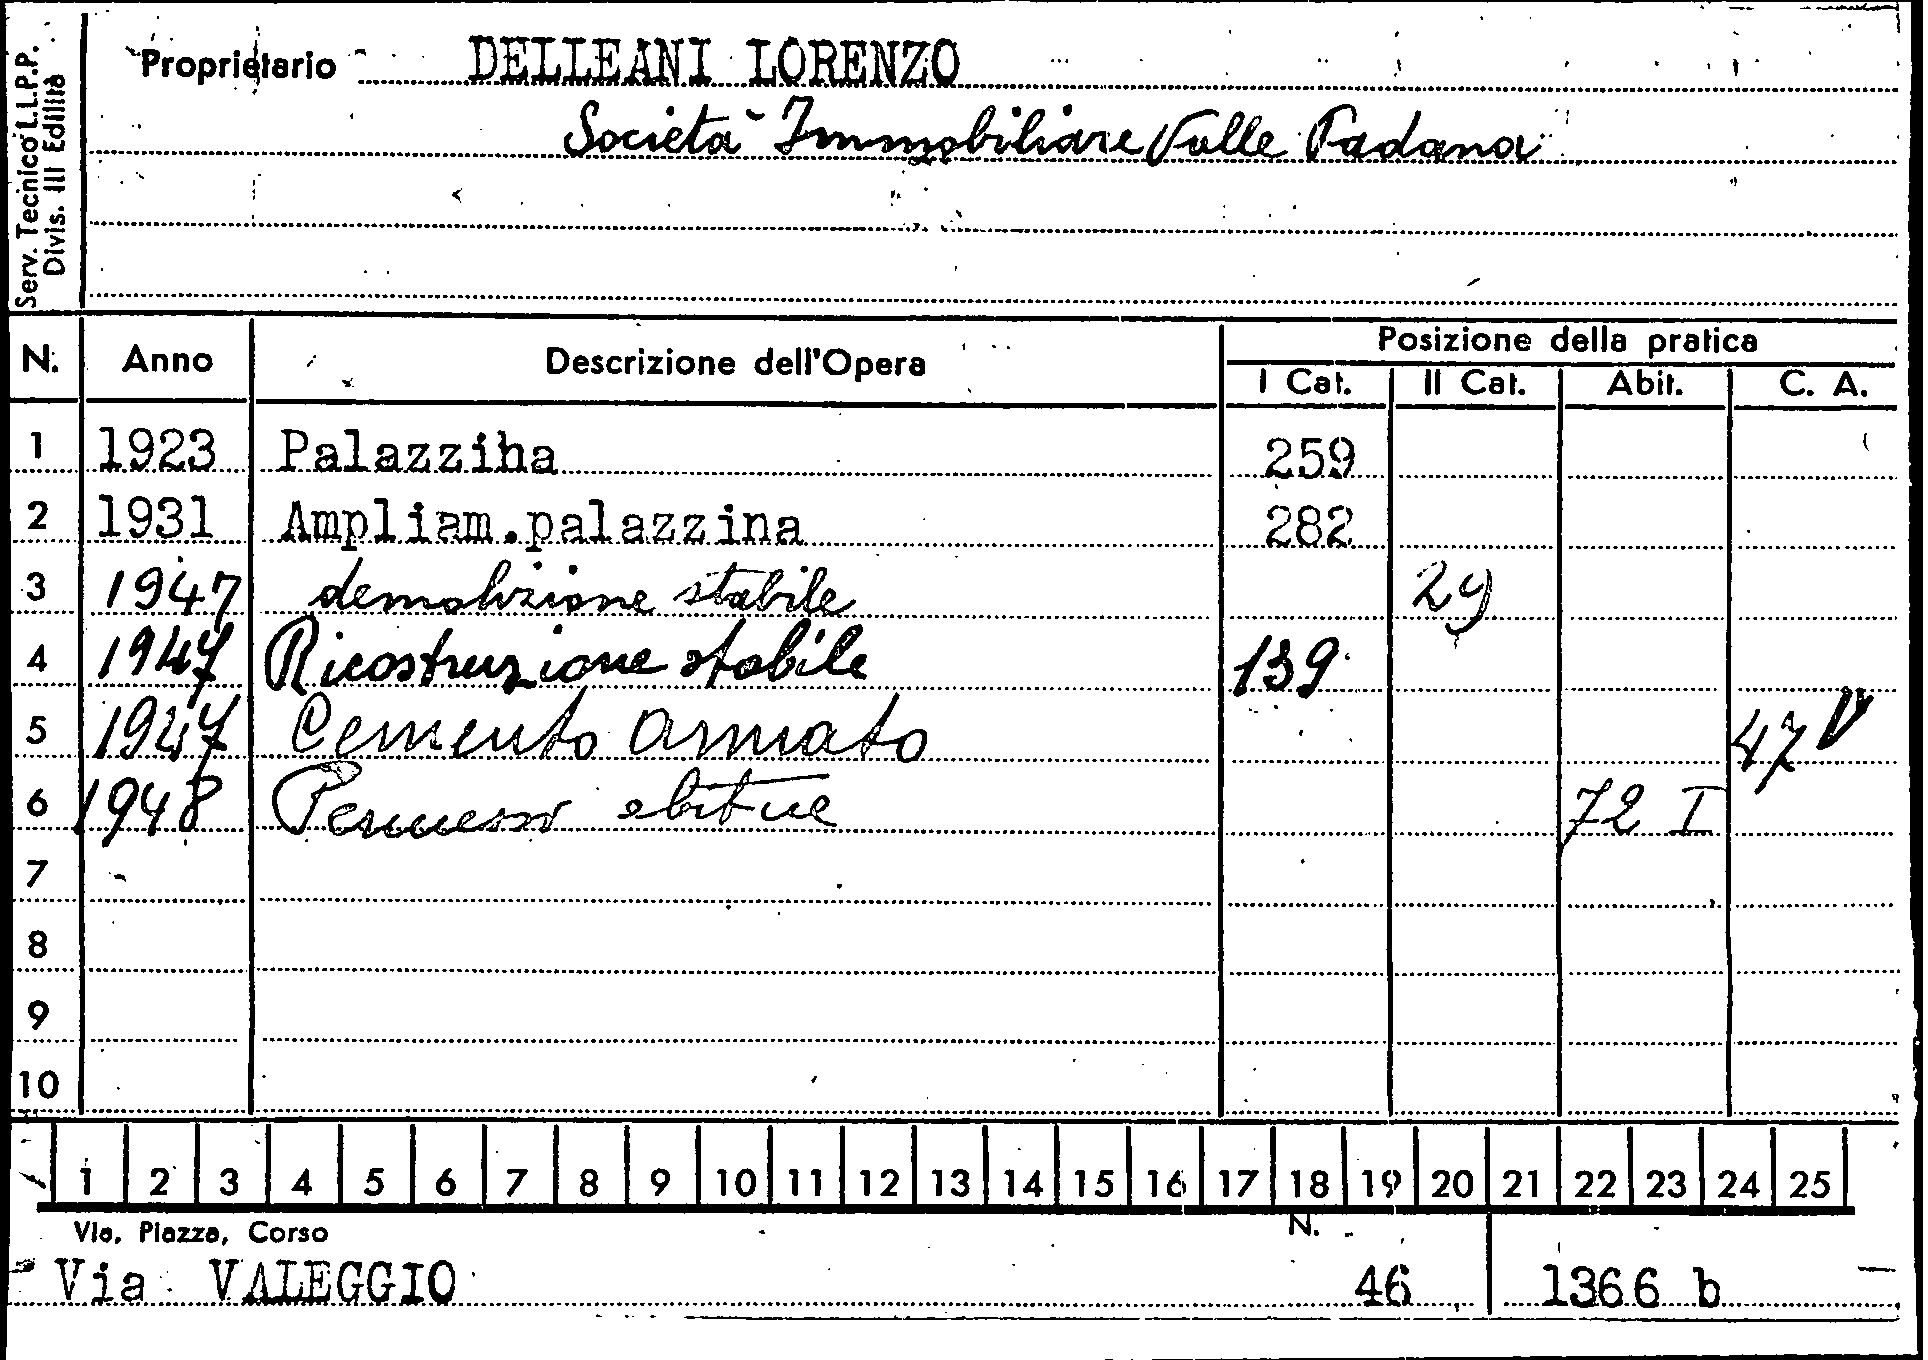 Serv. Tecnico L.L.P.P.
Divis. III Edilità
Proprietario DELLEANI LORENZO
Società Immobiliare Valle Padana
N. Anno Descrizione dell'Opera Posizione della pratica
I Cat. II Cat. Abit. C. A.
1 1923 Palazzina 259
2 1931 Ampliam.palazzina 282
3 1947 demolizione stabile 29
4 1947 Ricostruzione stabile 139
5 1947 Cemento armato 47 V
6 1948 Permesso abitue 72 I
7
8
9
10
1 2 3 4 5 6 7 8 9 10 11 12 13 14 15 16 17 18 19 20 21 22 23 24 25
Via, Piazza, Corso N.
Via VALEGGIO 46 1366 b